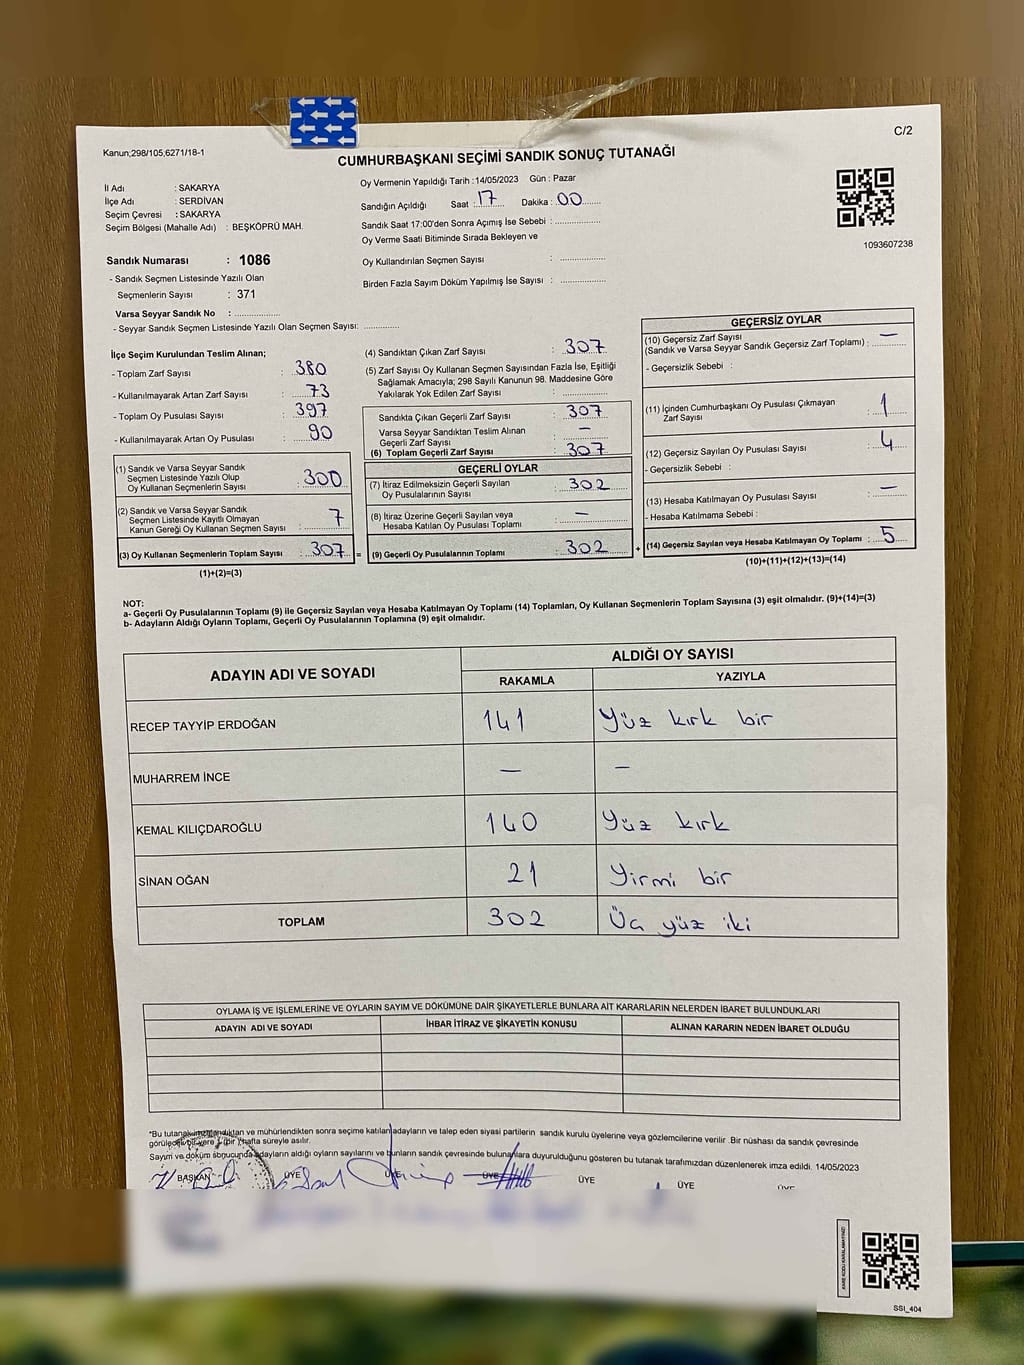 C/2
Kanun;298/105,6271/18-1
CUMHURBAŞKANI SEÇİMİ SANDIK SONUÇ TUTANAĞI
İl Adı : SAKARYA
İlçe Adı : SERDİVAN
Seçim Çevresi : SAKARYA
Seçim Bölgesi (Mahalle Adı) : BEŞKÖPRÜ MAH.
Sandık Numarası : 1086
- Sandık Seçmen Listesinde Yazılı Olan
Seçmenlerin Sayısı : 371
Varsa Seyyar Sandık No :
- Seyyar Sandık Seçmen Listesinde Yazılı Olan Seçmen Sayısı:
Oy Vermenin Yapıldığı Tarih :14/05/2023 Gün : Pazar
Sandığın Açıldığı Saat : 17 Dakika : 00
Sandık Saat 17:00'den Sonra Açımış İse Sebebi :
Oy Verme Saati Bitiminde Sırada Bekleyen ve
Oy Kullandırılan Seçmen Sayısı :
Birden Fazla Sayım Döküm Yapılmış İse Sayısı :
1093607238
İlçe Seçim Kurulundan Teslim Alınan;
- Toplam Zarf Sayısı : 380
- Kullanılmayarak Artan Zarf Sayısı : 73
- Toplam Oy Pusulası Sayısı : 397
- Kullanılmayarak Artan Oy Pusulası : 90
(1) Sandık ve Varsa Seyyar Sandık
Seçmen Listesinde Yazılı Olup
Oy Kullanan Seçmenlerin Sayısı : 300
(2) Sandık ve Varsa Seyyar Sandık
Seçmen Listesinde Kayıtlı Olmayan
Kanun Gereği Oy Kullanan Seçmen Sayısı : 7
(3) Oy Kullanan Seçmenlerin Toplam Sayısı : 307 =
(1)+(2)=(3)
(4) Sandıktan Çıkan Zarf Sayısı : 307
(5) Zarf Sayısı Oy Kullanan Seçmen Sayısından Fazla İse, Eşitliği
Sağlamak Amacıyla; 298 Sayılı Kanunun 98. Maddesine Göre
Yakılarak Yok Edilen Zarf Sayısı :
Sandıkta Çıkan Geçerli Zarf Sayısı : 307
Varsa Seyyar Sandıktan Teslim Alınan
Geçerli Zarf Sayısı : –
(6) Toplam Geçerli Zarf Sayısı : 307
GEÇERLİ OYLAR
(7) İtiraz Edilmeksizin Geçerli Sayılan
Oy Pusulalarının Sayısı : 302
(8) İtiraz Üzerine Geçerli Sayılan veya
Hesaba Katılan Oy Pusulası Toplamı : –
(9) Geçerli Oy Pusulalarının Toplamı : 302 +
GEÇERSİZ OYLAR
(10) Geçersiz Zarf Sayısı
(Sandık ve Varsa Seyyar Sandık Geçersiz Zarf Toplamı) : –
- Geçersizlik Sebebi :
(11) İçinden Cumhurbaşkanı Oy Pusulası Çıkmayan
Zarf Sayısı : 1
(12) Geçersiz Sayılan Oy Pusulası Sayısı : 4
- Geçersizlik Sebebi :
(13) Hesaba Katılmayan Oy Pusulası Sayısı : –
- Hesaba Katılmama Sebebi :
(14) Geçersiz Sayılan veya Hesaba Katılmayan Oy Toplamı : 5
(10)+(11)+(12)+(13)=(14)
NOT:
a- Geçerli Oy Pusulalarının Toplamı (9) ile Geçersiz Sayılan veya Hesaba Katılmayan Oy Toplamı (14) Toplamları, Oy Kullanan Seçmenlerin Toplam Sayısına (3) eşit olmalıdır. (9)+(14)=(3)
b- Adayların Aldığı Oyların Toplamı, Geçerli Oy Pusulalarının Toplamına (9) eşit olmalıdır.
ADAYIN ADI VE SOYADI ALDIĞI OY SAYISI
RAKAMLA YAZIYLA
RECEP TAYYİP ERDOĞAN 141 Yüz kırk bir
MUHARREM İNCE – –
KEMAL KILIÇDAROĞLU 140 Yüz kırk
SİNAN OĞAN 21 Yirmi bir
TOPLAM 302 Üç yüz iki
OYLAMA İŞ VE İŞLEMLERİNE VE OYLARIN SAYIM VE DÖKÜMÜNE DAİR ŞİKAYETLERLE BUNLARA AİT KARARLARIN NELERDEN İBARET BULUNDUKLARI
ADAYIN ADI VE SOYADI İHBAR İTİRAZ VE ŞİKAYETİN KONUSU ALINAN KARARIN NEDEN İBARET OLDUĞU
*Bu tutanak imzalandıktan ve mühürlendikten sonra seçime katılan adayların ve talep eden siyasi partilerin sandık kurulu üyelerine veya gözlemcilerine verilir .Bir nüshası da sandık çevresinde
görülecek bir yere 1 (bir ) hafta süreyle asılır.
Sayım ve döküm sonucunda adayların aldığı oyların sayılarını ve bunların sandık çevresinde bulunanlara duyurulduğunu gösteren bu tutanak tarafımızdan düzenlenerek imza edildi. 14/05/2023
BAŞKAN ÜYE ÜYE ÜYE ÜYE ÜYE ÜYE
SSI_404